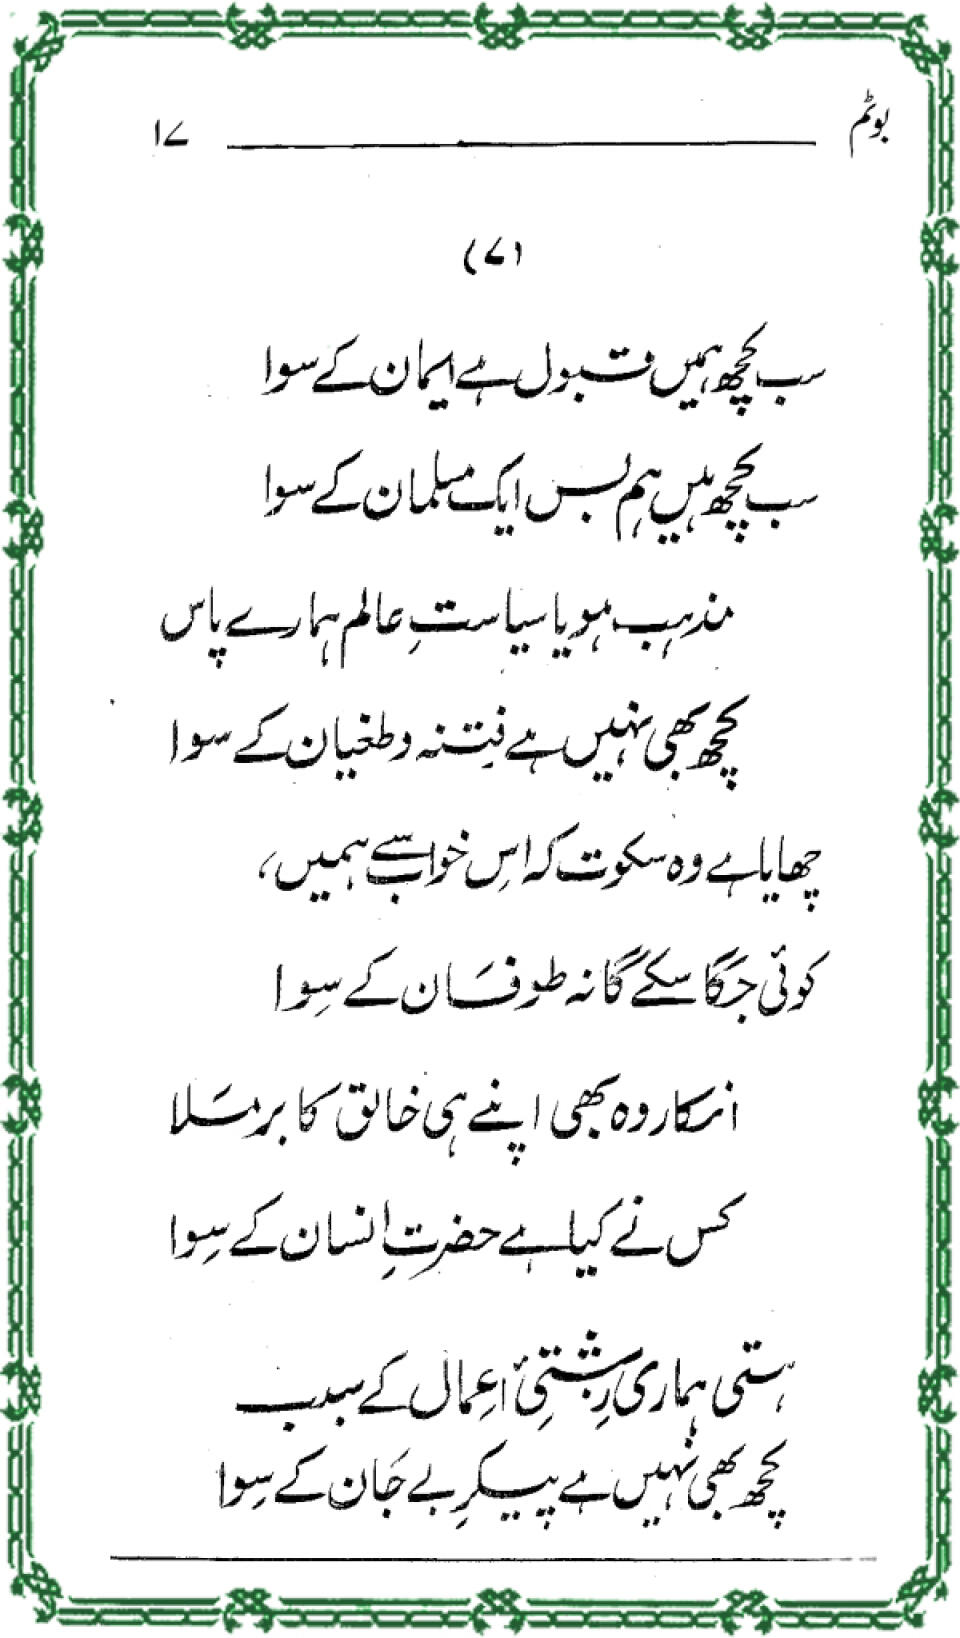 بوٹم ۱۷
(۷)
سب کچھ ہمیں قبول ہے ایمان کے سوا
سب کچھ ہیں ہم بس ایک مسلمان کے سوا
مذہب ہو یا سیاستِ عالم ہمارے پاس
کچھ بھی نہیں ہے فِتنہ و طغیان کے سوا
چھایا ہے وہ سکوت کہ اِس خواب سے ہمیں،
کوئی جگا سکے گا نہ طوفَان کے سِوا
انکار وہ بھی اپنے ہی خالق کا برمَلا
کس نے کیا ہے حضرتِ اِنسان کے سِوا
ہستی ہماری زِشتیِٔ اعِمال کے سبب
کچھ بھی نہیں ہے پیکرِ بے جَان کے سِوا